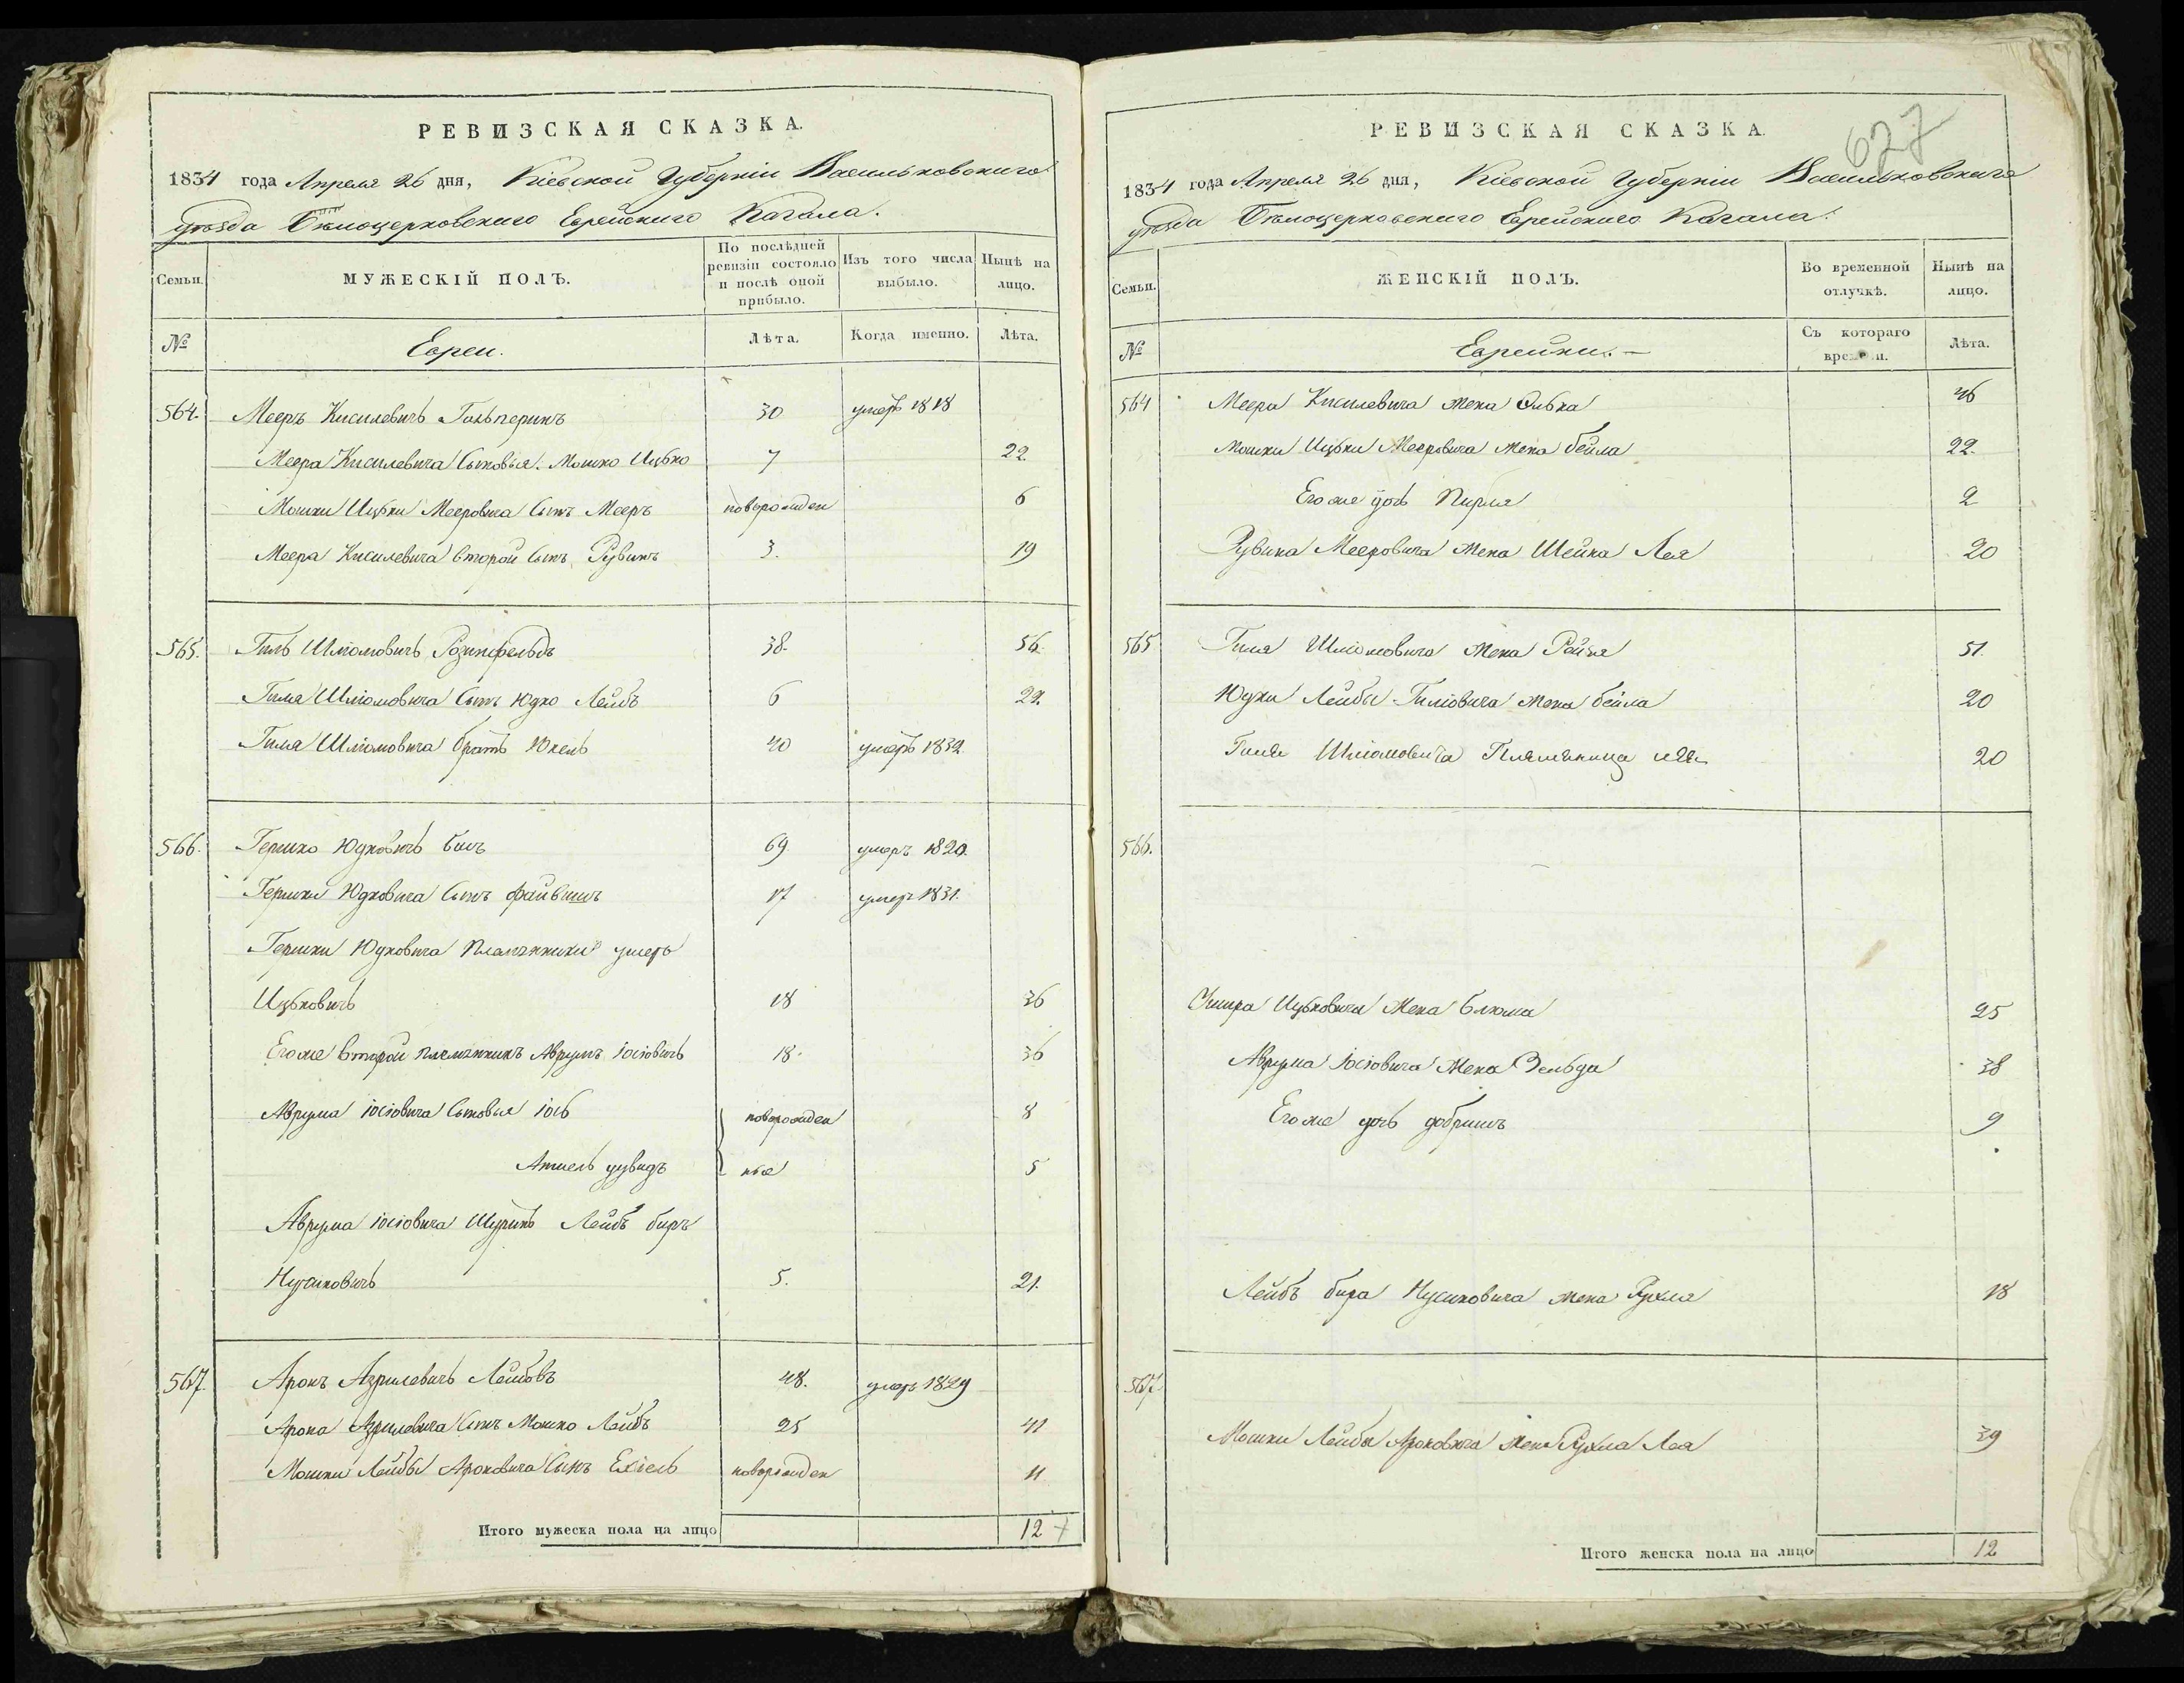 РЕВИЗСКАЯ СКАЗКА.
1834 года Апреля 26 дня, Кіевской Губерніи Васильковского
уѣзда Бѣлоцерковского Еврейского Кагала.
Семьи.
МУЖЕСКІЙ ПОЛЪ.
По послѣдней ревизіи состояло и послѣ оной прибыло.
Изъ того числа выбыло.
Нынѣ на лицо.
№
Евреи.
Лѣта.
Когда именно.
Лѣта.
564. Мееръ Кисилевичъ Гальперинъ 30 умеръ 1818
Меера Кисилевича Сыновья. Мошко Ицько 7 22
Мошки Ицьки Мееровича Сынъ Мееръ новорожден 6
Меера Кисилевича второй Сынъ Рувинъ 3. 19
565. Гиль Шліомовичъ Розинфельдъ 38. 56
Гиля Шліомовича Сынъ Юдко Лейбъ 6 22.
Гиля Шліомовича братъ Юкель 40 умеръ 1832
566. Гершко Юдковичъ 69 умеръ 1820.
Гершки Юдковича Сынъ Файвишъ 17 умеръ 1831.
Гершки Юдковича Племянники
Ицьковичъ 18 36
Егоже второй племянникъ Аврумъ Іосіовичъ 18. 36
Аврума Іосіовича Сыновья Іось новорожден 8
Аншель дувидъ ные 5
Аврума Іосіовича Шуринъ Лейбъ беръ
Нусиновичъ 5. 21.
567. Аронъ Азрилевичъ Лейбовъ 48. умеръ 1829
Арона Азрилевича Сынъ Мошко Лейбъ 25 41
Мошки Лейбы Ароновича Сынъ Ехіель новорожден 11
Итого мужеска пола на лицо 12
627
РЕВИЗСКАЯ СКАЗКА.
1834 года Апреля 26 дня, Кіевской Губерніи Васильковского
уѣзда Бѣлоцерковского Еврейского Кагала.
Семьи.
ЖЕНСКІЙ ПОЛЪ.
Во временной отлучкѣ.
Нынѣ на лицо.
№
Еврейки.
Съ котораго времени.
Лѣта.
564 Меера Кисилевича жена 46
Мошки Ицьки Мееровича жена бейла 22.
Егоже дочь Пирля 2
Рувина Мееровича жена Шейна Лея 20
565 Гиля Шліомовича жена Рейзя 51.
Юдки Лейбы Гиліовича жена бейла 20
Гиля Шліомовича Племяница 20
566.
Ицьковича жена блюма 25
Аврума Іосіовича жена Зельда 38
Егоже дочь добришъ 9
Лейбъ бера Нусиновича жена Рухля 18
567.
Мошки Лейбы Ароновича жена Рухля Лея 39
Итого женска пола на лицо 12